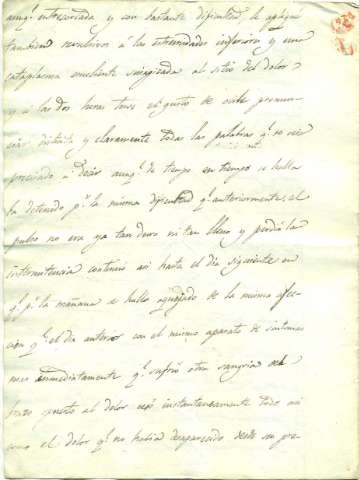 aunq.e entrecortada y con bastante dificultad, le apliqué
tambien revulsivos á las extremidades inferiores y una
cataplasma emoliente sinapizada al sitio del dolor
y á las dos horas tuve el gusto de oirle pronun-
ciar distinta y claramente todas las palabras q.e se vio
precisado á decir aunq.e de tiempo en tiempo se halla
ba detenido p.r la misma dificultad q.e anteriormente, el
pulso no era ya tan duro ni tan lleno y perdió la
intermitencia continuó asi hasta el dia siguiente en
q.e p.r la mañana se halló aquejado de la misma afec-
cion q.e el dia anterior con el mismo aparato de sintomas
mas inmediatamente q.e sufrió otra sangria del
brazo puesto al dolor cesó instantaneamente todo asi
como el dolor q.e no habia desaparecido desde su pre-